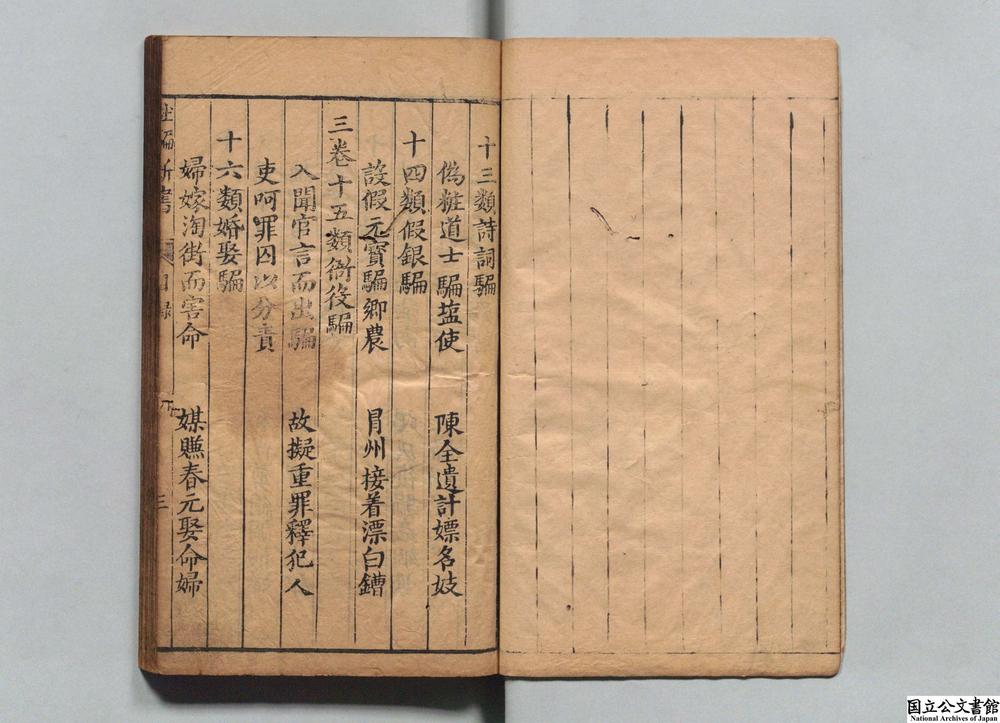 十三類詩詞騙
偽粧道士騙塩使　陳全遺計嫖名妓
十四類假銀騙
設假元寳騙鄉農　冐州接着漂白鏪
三卷十五類衙役騙
入聞官言而出騙　故擬重罪釋犯人
吏呵罪囚以分責
十六類婚娶騙
婦嫁淘街而害命　媒賺春元娶命婦
杜騙新書　目錄　三
国立公文書館
National Archives of Japan